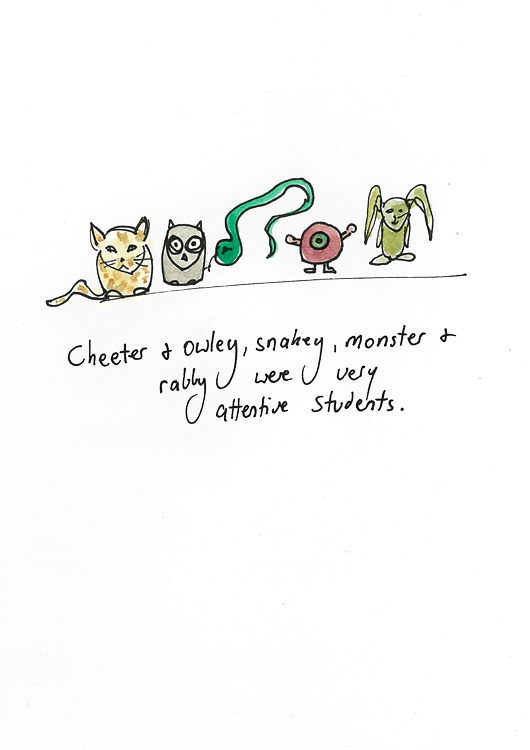 Cheeter & Owley, snakey, monster &
rabby were very
attentive students.